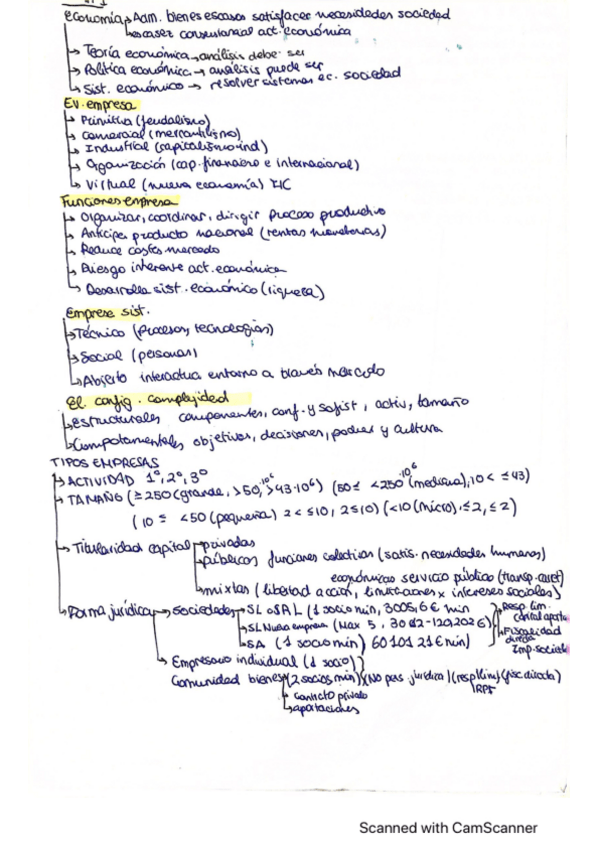 economía → Adm. bienes escasos satisfacer necesidades sociedad
→ escasez consustancial act. económica
→ Teoría económica → análisis debe ser
→ Política económica → análisis puede ser
→ Sist. económico → resolver sistemas ec. sociedad
Ev. empresa
→ Primitiva (feudalismo)
→ Comercial (mercantilismo)
→ Industrial (capitalismo ind)
→ Organización (cap. financiero e internacional)
→ Virtual (nueva economía) TIC
Funciones empresa
→ Organizar, coordinar, dirigir proceso productivo
→ Anticipa producto nacional (rentas monetarias)
→ Reduce costes mercado
→ Riesgo inherente act. económica
→ Desarrolla sist. económico (riqueza)
Empresa sist.
→ Técnico (procesos, tecnologías)
→ Social (personas)
→ Abierto interactua entorno a través mercado
El. config. complejidad
→ estructurales componentes, conf. y sofist, activ, tamaño
→ Comportamentales objetivos, decisiones, poder y cultura
TIPOS EMPRESAS
→ ACTIVIDAD 1º, 2º, 3º
→ TAMAÑO (≥250 (grande, >50·10⁶, >43·10⁶) (50≤ <250 (mediana), 10< ≤43)
(10 ≤ <50 (pequeña) 2< ≤10, 2≤10) (<10 (micro), ≤2, ≤2)
→ Titularidad capital → privadas
→ públicas funciones colectivas (satis. necesidades humanas)
económicas servicio público (transp.
→ mixtas (libertad acción, limitaciones x intereses sociales)
→ Forma jurídica → sociedades → SL o SRL (1 socio min, 3005,6 € min
→ SL Nueva empresa (Max 5, 3012-120202 €)
→ SA (1 socio min) 60101 21 € min)
Resp. lim.
capital aporta
→ Fiscalidad
directa
Imp. socied
→ Empresario individual (1 socio)
Comunidad bienes (2 socios min) (No pers. jurídica) (resp. ilim) (fisc. directa)
IRPF
→ Contrato privado
→ aportaciones
Scanned with CamScanner